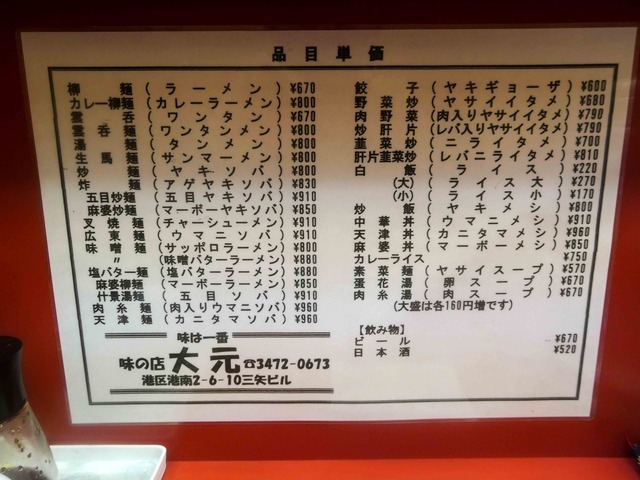 品目単価
柳麺(ラーメン)¥670
カレー柳麺(カレーラーメン)¥800
雲呑(ワンタン)¥670
雲呑麺(ワンタンメン)¥800
湯麺(タンメン)¥800
生馬麺(サンマーメン)¥800
炒麺(ヤキソバ)¥800
炸麺(アゲヤキソバ)¥830
五目炒麺(五目ヤキソバ)¥910
麻婆炒麺(マーボーヤキソバ)¥850
叉焼麺(チャーシューメン)¥910
広東麺(ウマニソバ)¥910
味噌麺(サッポロラーメン)¥800
〃(味噌バターラーメン)¥880
塩バター麺(塩バターラーメン)¥880
麻婆柳麺(マーボーメン)¥850
什景湯麺(五目ソバ)¥910
肉糸麺(肉入りウマニソバ)¥960
天津麺(カニタマソバ)¥960
味は一番
味の店 大元 ☎3472-0673
港区港南2-6-10三矢ビル
餃子(ヤキギョーザ)¥600
野菜炒(ヤサイイタメ)¥680
肉野菜(肉入りヤサイイタメ)¥790
炒肝片(レバ入りヤサイイタメ)¥790
韮菜炒(ニライタメ)¥700
肝片韮菜炒(レバニライタメ)¥810
白飯(ライス)¥220
(大)(ライス大)¥270
(小)(ライス小)¥170
炒飯(ヤキメシ)¥800
中華丼(ウマニメシ)¥910
天津丼(カニタマメシ)¥960
麻婆丼(マーボーメシ)¥850
カレーライス ¥750
素菜麺(ヤサイスープ)¥570
蛋花湯(卵スープ)¥670
肉糸湯(肉スープ)¥670
(大盛は各160円増です)
【飲み物】
ビール ¥670
日本酒 ¥520